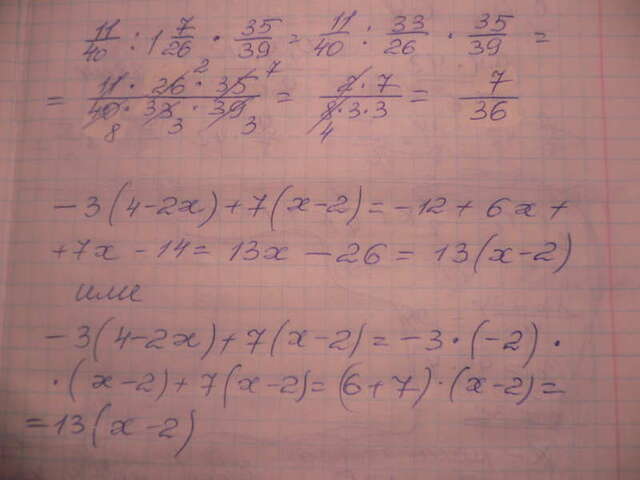 11/40 : 1 7/26 · 35/39 = 11/40 : 33/26 · 35/39 =
= 11 · 26 2 · 35 7 / 40 8 · 33 3 · 39 3 = 2 · 7 / 8 4 · 3 · 3 = 7/36
-3(4-2x)+7(x-2)=-12+6x+
+7x-14=13x-26=13(x-2)
или
-3(4-2x)+7(x-2)=-3·(-2)·
·(x-2)+7(x-2)=(6+7)·(x-2)=
=13(x-2)